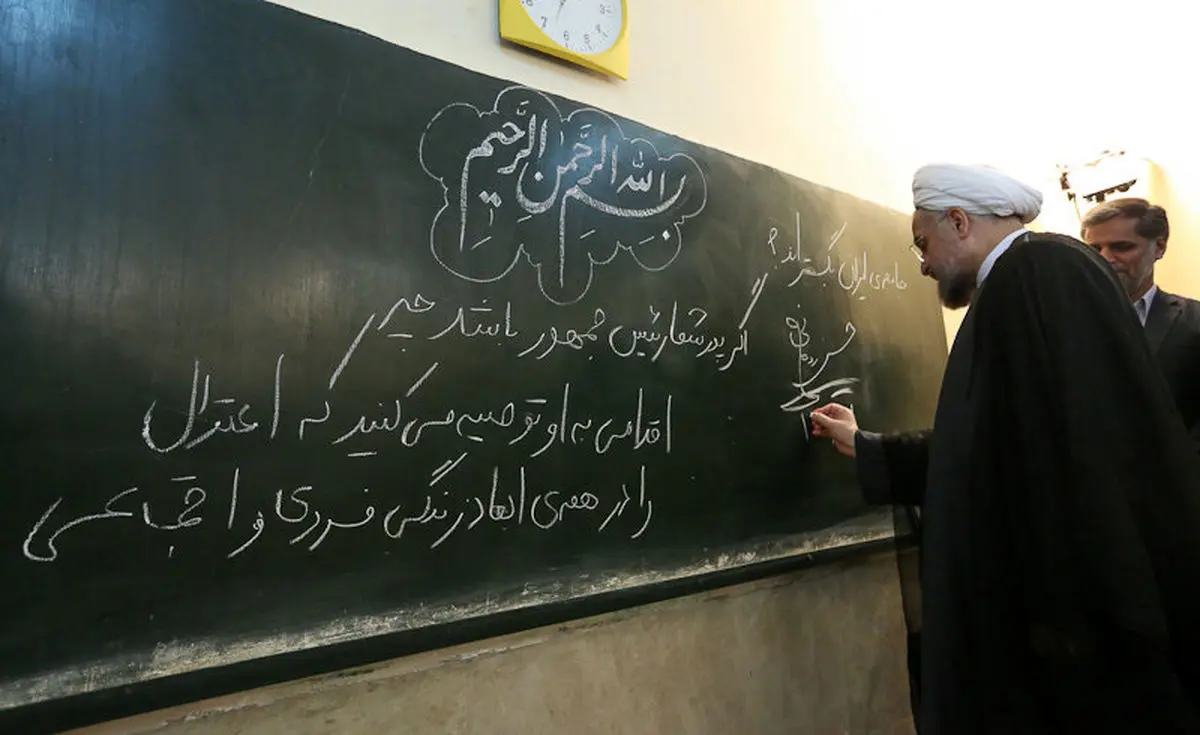 بِسمِ اللّه الرَّحمنِ الرَّحیمِ
اگر پدر شما رئیس جمهور باشد چه
اقدامی به او توصیه می کنید که اعتدال
را در همه ی ابعاد زندگی فردی و اجتماعی
جامعه ی ایران بگستراند؟
حسن روحانی